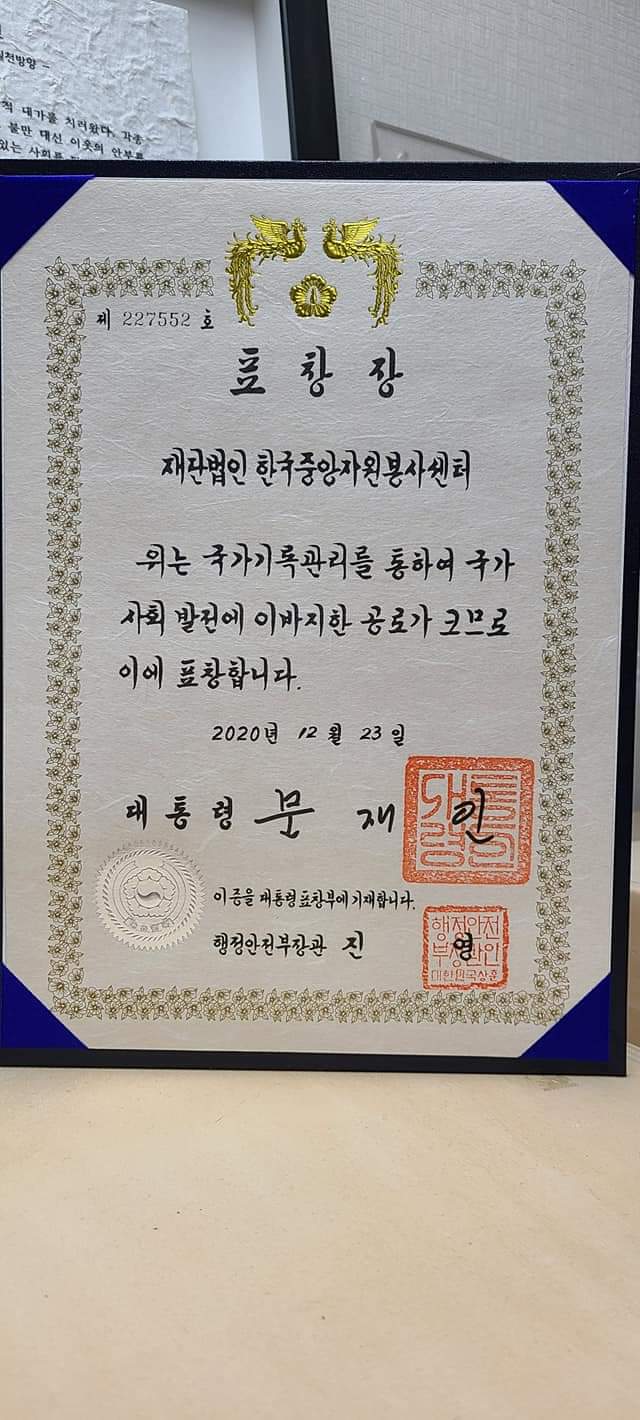 천방향 -
적 대가를 치러왔다. 각종
불만 대신 이웃의 안부를
있는 사회를
제 227552 호
표창장
재단법인 한국중앙자원봉사센터
위는 국가기록관리를 통하여 국가
사회 발전에 이바지한 공로가 크므로
이에 표창합니다.
2020년 12월 23일
대통령 문재인
대통령의인
이 증을 대통령표창부에 기재합니다.
행정안전부장관 진영
행정안전
부장관인
대한민국상훈